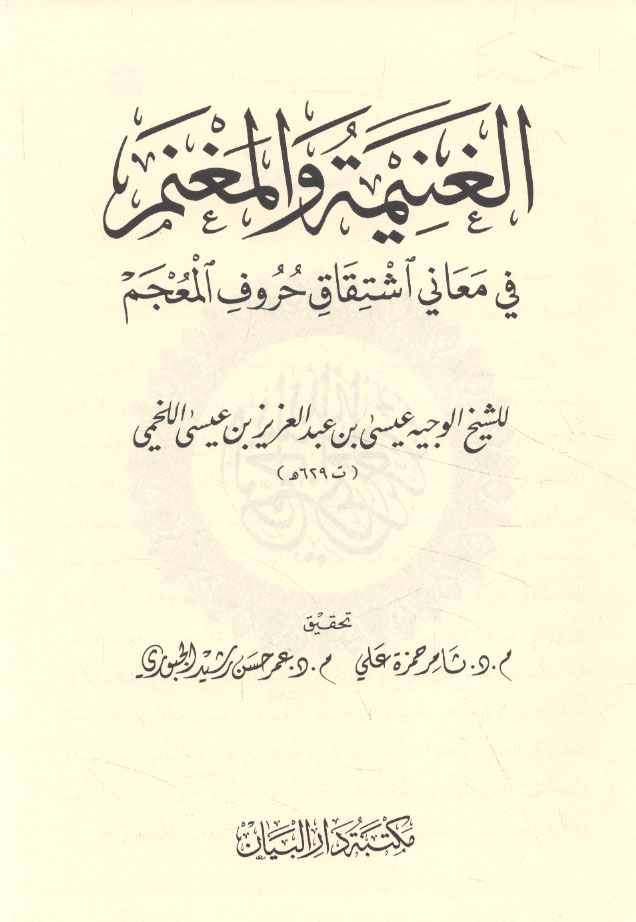 الغَنِيمَةُ وَالمَغْنَمُ
فِي مَعَانِي ٱشْتِقَاقِ حُرُوفِ ٱلْمُعْجَمْ
للشيخ الوجيه عيسى بن عبد العزيز بن عيسى اللخمي
(ت ٦٢٩هـ)
تحقيق
م.د. ثامر حمزة علي م.د. عمر حسن رشيد الجبوري
مكتبة دار البيان